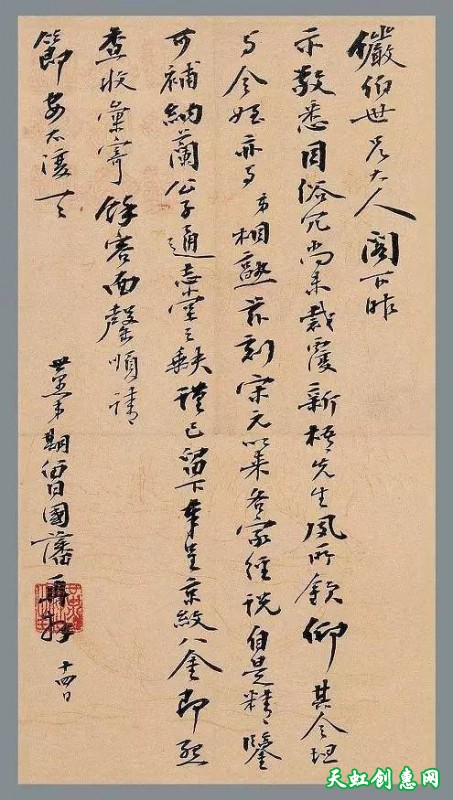 儼伯世兄大人閣下昨
示敬悉因俗冗尚未裁覆新梧先生夙所欽仰其令
与令姪亦与弟相熟前刻宋元以来各家經說自是精鑒
可補納蘭公子通志堂之缺謹已留下奉呈京紋八金即
查收彙寄餘容面罄順請
節安不
世弟期曾國藩再拜 十四日
天虹创惠网